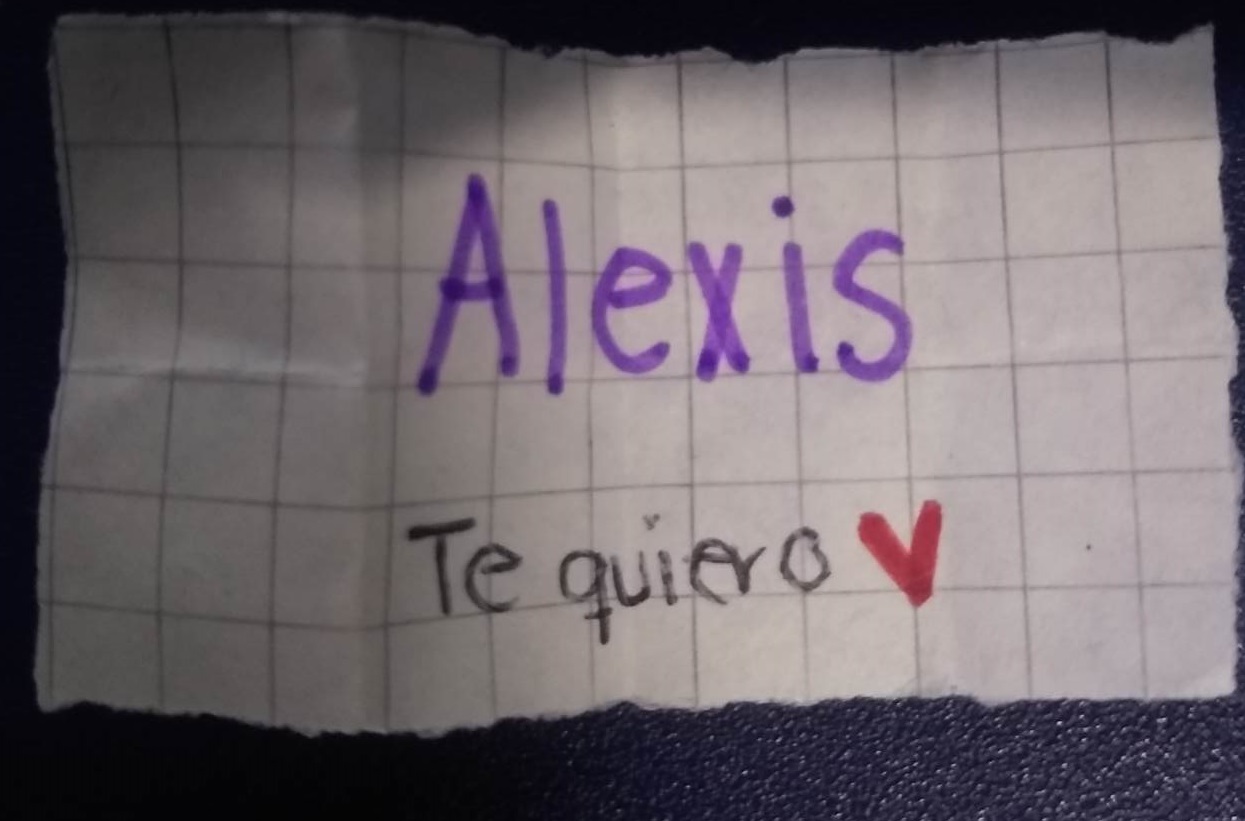 Alexis
Te quiero ♥